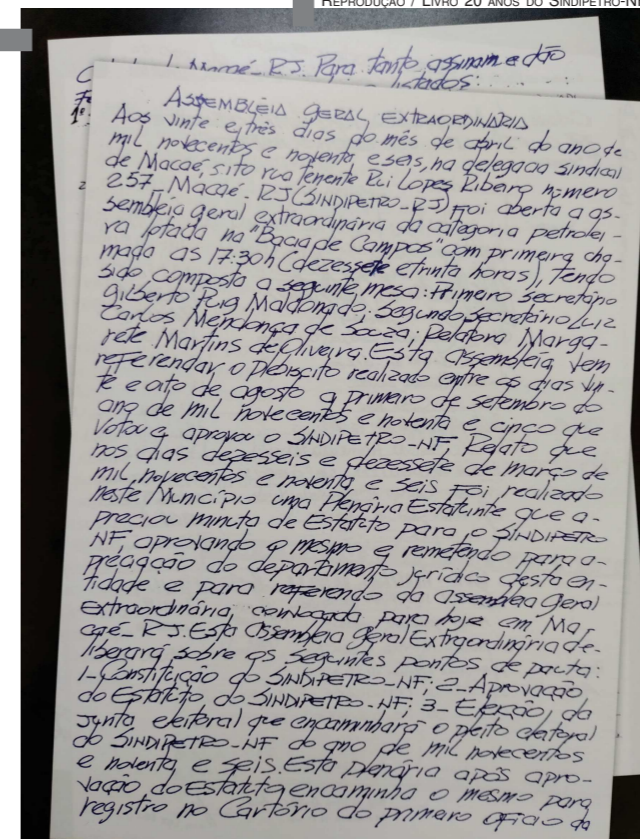 REPRODUÇÃO / LIVRO 20 ANOS DO SINDIPETRO-NF
Macaé-RJ. Para tanto, assinam e dão
listados:
1ª
2
ASSEMBLÉIA GERAL EXTRAORDINÁRIA
Aos vinte e três dias do mês de abril do ano de
mil novecentos e noventa e seis, na delegacia sindical
de Macaé, sito rua Tenente Rui Lopes Ribeiro número
257_Macaé_RJ(SINDIPETRO_RJ) Foi aberta a as-
sembléia geral extraordinária da categoria petrolei-
ra lotada na "Bacia de Campos" com primeira cha-
mada as 17:30h (dezessete e trinta horas), tendo
sido composta a seguinte mesa: Primeiro secretário
Gilberto Puig Maldonado; Segundo Secretário Luiz
Carlos Mendonça de Souza; Relatora Marga-
rete Martins de Oliveira. Esta assembléia vem
referendar o Plebiscito realizado entre os dias vin-
te e oito de agosto a primeiro de setembro do
ano de mil novecentos e noventa e cinco que
votou e aprovou o SINDIPETRO_NF. Relato que
nos dias dezesseis e dezessete de março de
mil novecentos e noventa e seis Foi realizado
neste Município uma Plenária Estatuinte que a-
preciou minuta de Estatuto para o SINDIPETRO
NF, aprovando o mesmo e remetendo para a-
preciação do departamento jurídico desta en-
tidade e para referendo da assembléia Geral
Extraordinária, convocada para hoje em Ma-
caé_RJ. Esta Assembléia Geral Extraordinária de-
liberará sobre os seguintes pontos de pauta:
1-Constituição do SINDIPETRO_NF; 2_Aprovação
do Estatuto do SINDIPETRO_NF; 3_Eleição da
junta eleitoral que encaminhará o pleito eleitoral
do SINDIPETRO_NF do ano de mil novecentos
e noventa e seis. Esta plenária após apro-
vação do Estatuto encaminha o mesmo para
registro no Cartório do primeiro ofício da